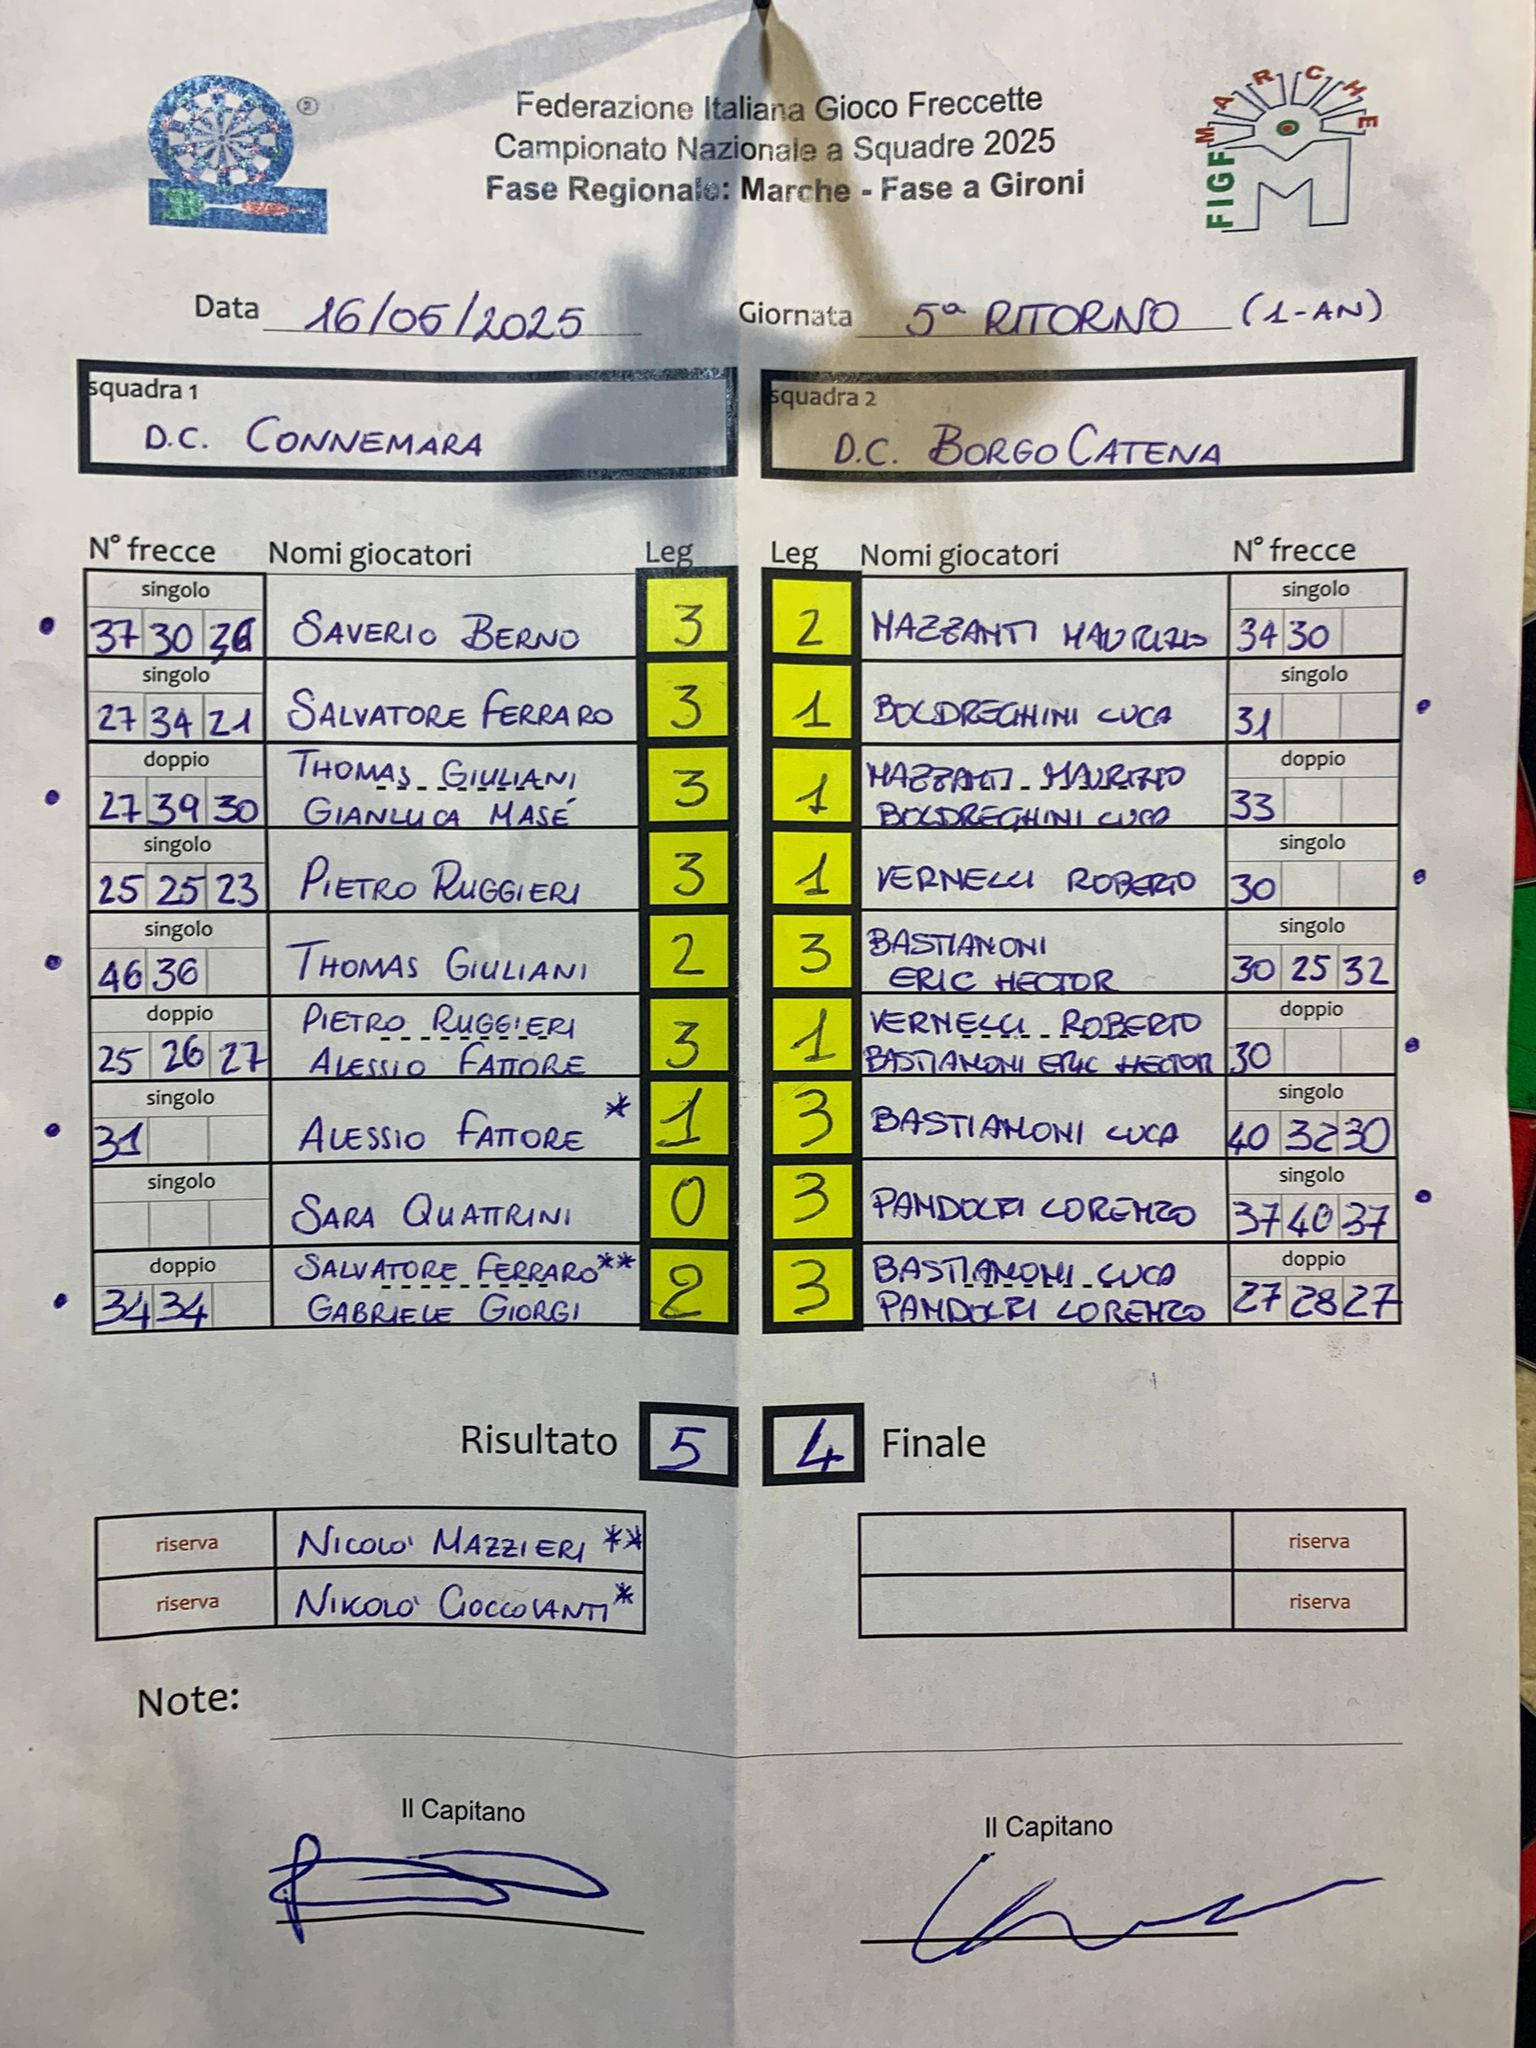 Federazione Italiana Gioco Freccette
Campionato Nazionale a Squadre 2025
Fase Regionale: Marche - Fase a Gironi
MARCHE
FIGF
M
Data 16/05/2025 Giornata 5ª RITORNO (1-AN)
squadra 1 squadra 2
D.C. CONNEMARA D.C. BORGO CATENA
N° frecce Nomi giocatori Leg Leg Nomi giocatori N° frecce
singolo singolo
37 30 36 SAVERIO BERNO 3 2 MAZZANTI MAURIZIO 34 30
singolo singolo
27 34 21 SALVATORE FERRARO 3 1 BOLDREGHINI LUCA 31
doppio THOMAS GIULIANI MAZZANTI MAURIZIO doppio
27 39 30 GIANLUCA MASÉ 3 1 BOLDREGHINI LUCA 33
singolo singolo
25 25 23 PIETRO RUGGIERI 3 1 VERNELLI ROBERTO 30
singolo BASTIANONI singolo
46 36 THOMAS GIULIANI 2 3 ERIC HECTOR 30 25 32
doppio PIETRO RUGGIERI VERNELLI ROBERTO doppio
25 26 27 ALESSIO FATTORE 3 1 BASTIANONI ERIC HECTOR 30
singolo singolo
31 ALESSIO FATTORE * 1 3 BASTIANONI LUCA 40 32 30
singolo singolo
SARA QUATTRINI 0 3 PANDOLFI LORENZO 37 40 37
doppio SALVATORE FERRARO** BASTIANONI LUCA doppio
34 34 GABRIELE GIORGI 2 3 PANDOLFI LORENZO 27 28 27
Risultato 5 4 Finale
riserva NICOLO' MAZZIERI ** riserva
riserva NIKOLO' CIOCCOVANTI * riserva
Note:
Il Capitano Il Capitano